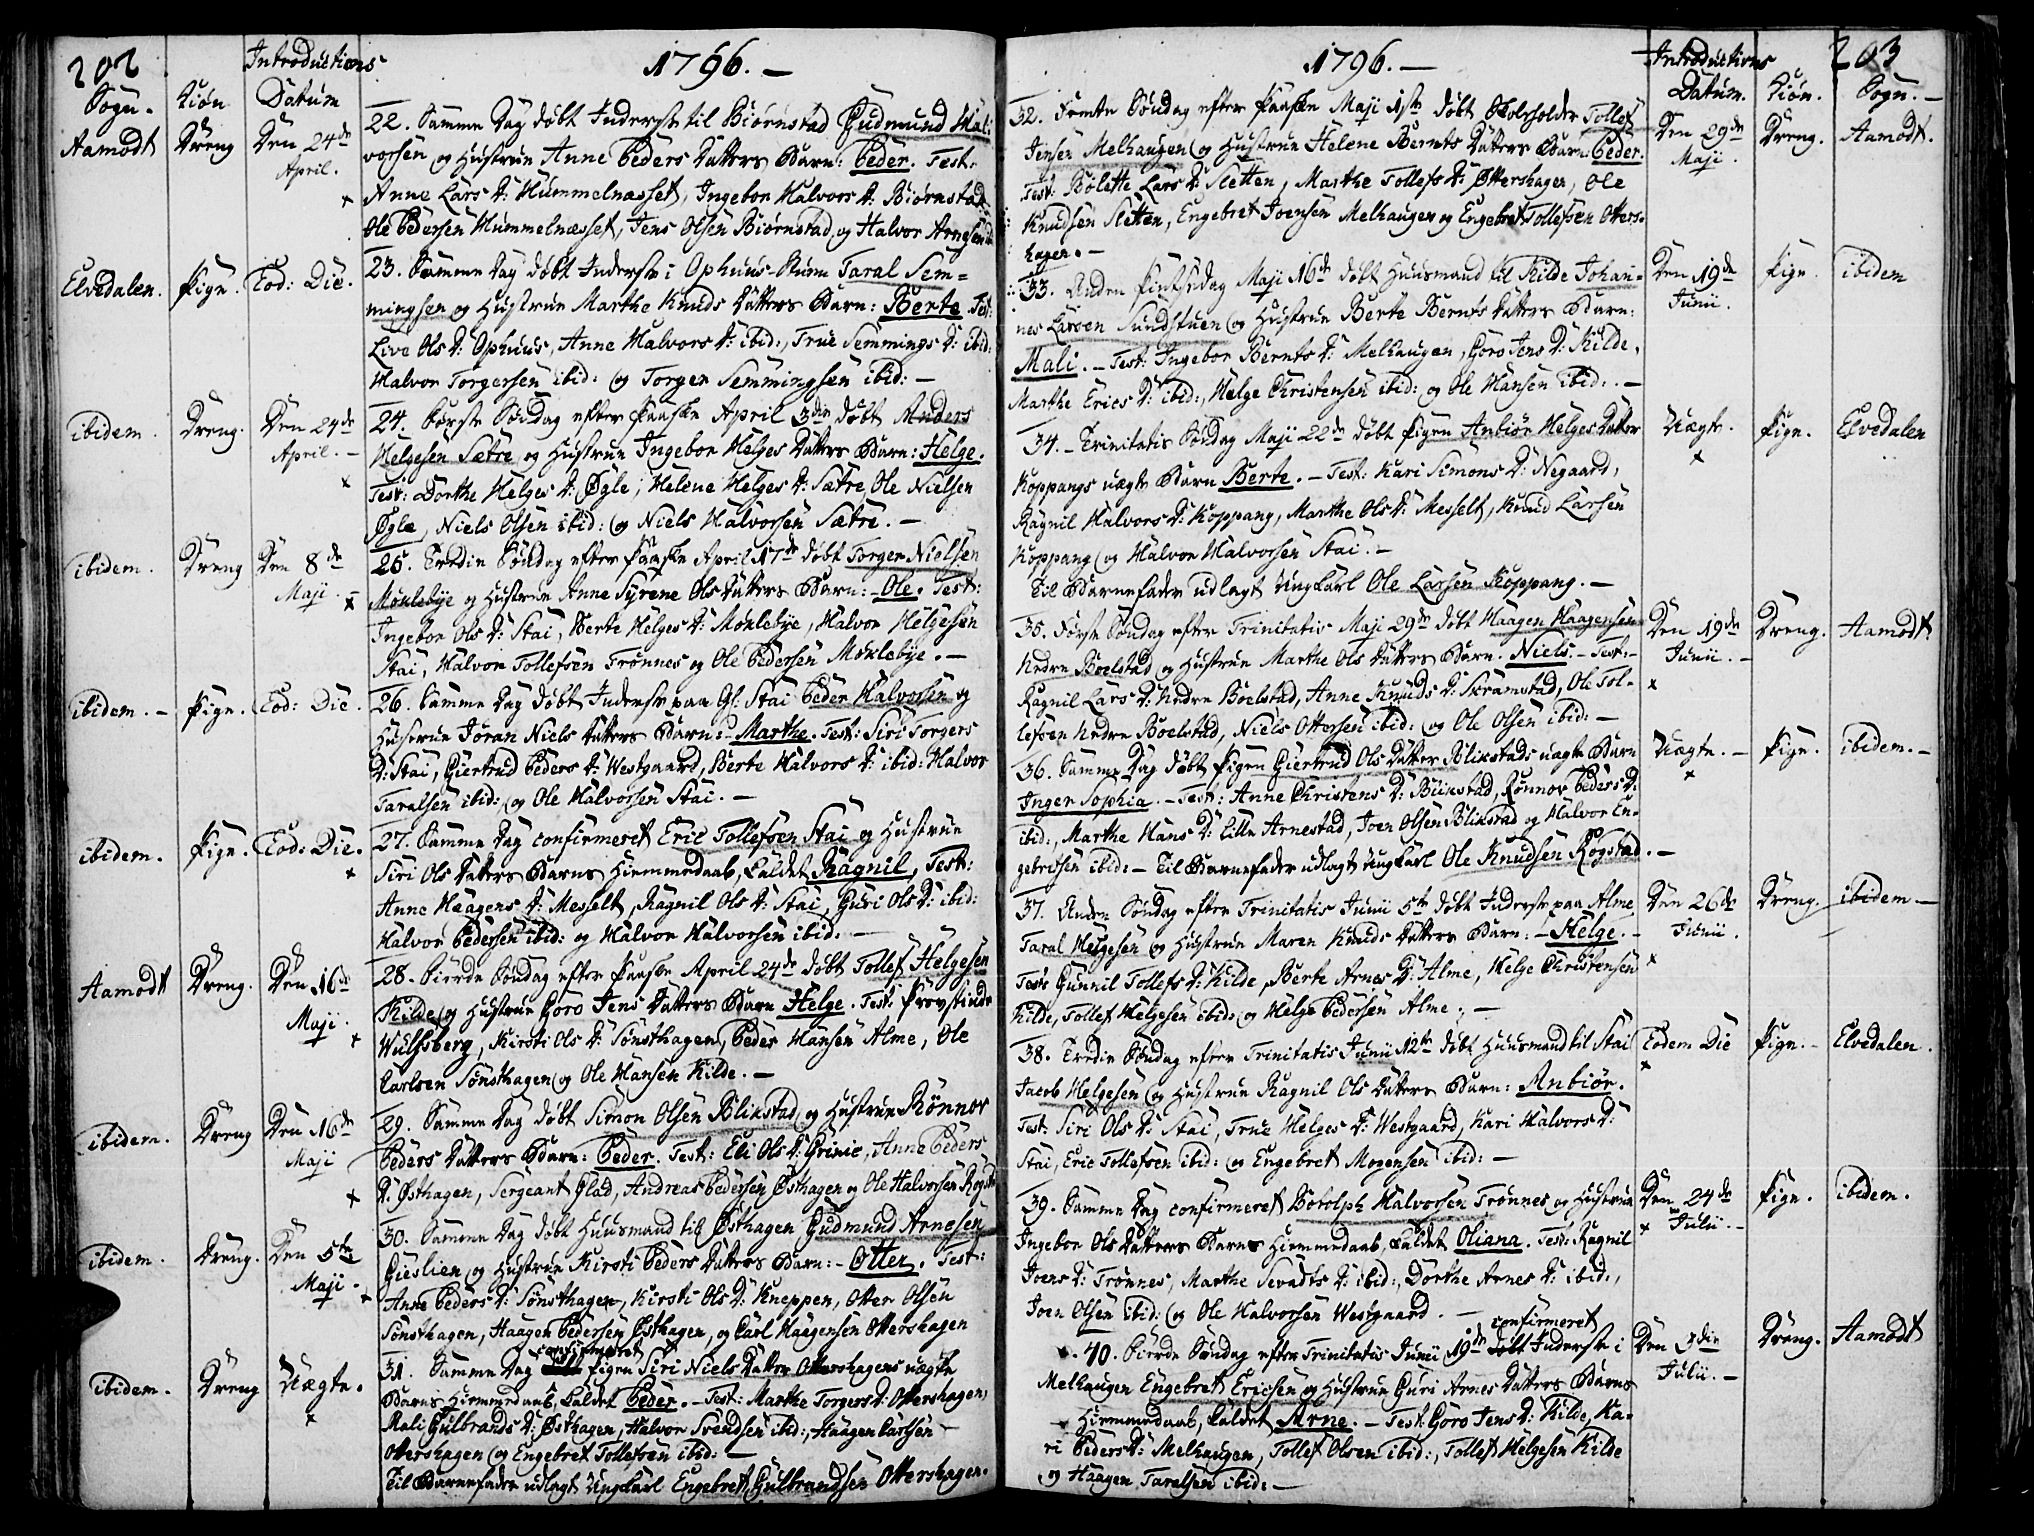 202
1796. –
Introductions
Sogn. Kiøn Datum
Aamodt Dreng Den 24de April.
22. Samme Dag døbt Inderste til Biørnstad Gudmund Hal-
vorsen og Hustrue Anne Peders Datters Barn: Peder. Test:
Anne Lars D: Hummelnæsset, Ingebor Halvors D: Biørnstad
Ole Pedersen Hummelnæsset, Jens Olsen Biørnstad og Halvor Arnesen
Elvedalen. Pige. Eod: Die.
23. Samme Dag døbt Inderste i Ophuus-Stuen Taral Sem-
mingsen og Hustrue Marthe Knuds Datters Barn: Berte. Test:
Live Ols D: Ophuus, Anne Halvors D: ibid:, True Semmings D: ibid:
Halvor Torgersen ibid: og Torger Semmingsen ibid: –
ibidem. Dreng. Den 24de April. –
24. Første Søndag efter Paaske April 3die døbt Anders
Helgesen Sætre og Hustrue Ingebor Helges Datters Barn: Helge.
Test: Dorthe Helges D: Øgle, Helene Helges D: Sætre, Ole Nielsen
Øgle, Niels Olsen ibid: og Niels Halvorsen Sætre. –
ibidem. Dreng Den 8de Maji. –
25. Tredie Søndag efter Paaske April 17de døbt Torger Nielsen
Møklebye og Hustrue Anne Syrene Ols Datters Barn: – Ole. Test:
Ingebor Ols D: Stai, Berte Helges D: Møklebye, Halvor Helgesen
Stai, Halvor Tollefsen Trønnes og Ole Pedersen Møklebye. –
ibidem. – Pige. Eod: Die.
26. Samme Dag døbt Inderste paa Gl: Stai Peder Halvorsen og
Hustrue Jøran Niels Datters Barn: – Marthe. Test: Siri Torgers
D: Stai, Giertrud Peders D: Westgaard, Berte Halvors D: ibid: Halvor
Taralsen ibid: og Ole Halvorsen Stai. –
ibidem. Pige. Eod: Die.
27. Samme Dag confirmeret Eric Tollefsen Stai og Hustrue
Siri Ols Datters Barns Hiemmedaab, kaldet Ragnil, Test:
Anne Haagens D: Messelt, Ragnil Ols D: Stai, Guri Ols D: ibid:
Halvor Pedersen ibid: og Halvor Halvorsen ibid: –
Aamodt Dreng. Den 16de Maji.
28. Fierde Søndag efter Paaske April 24de døbt Tollef Helgesen
Kilde og Hustrue Goro Jens Datters Barn Helge. Test: Provstinde
Wulfsberg, Kirsti Ols D: Sønsthagen, Peder Hansen Alme, Ole
Carlsen Sønsthagen og Ole Hansen Kilde. –
ibidem. Dreng Den 16de Maji
29. Samme Dag døbt Simon Olsen Blikstad og Hustrue Rønnov
Peders Datters Barn: Peder. Test: Eli Ols D: Grinie, Anne Peders
D: Østhagen, Sergeant Glad, Andreas Pedersen Østhagen og Ole Halvorsen
ibidem. Dreng. Den 5te Maji.
30. Samme Dag døbt Huusmand til Østhagen Gudmund Arnesen
Gieslien og Hustrue Kirsti Peders Datters Barn: – Otter. Test:
Anne Peders D: Sønsthagen, Kirsti Ols D: Kneppen, Otter Olsen
Sønsthagen, Haagen Pedersen Østhagen, og Carl Haagensen Ottershagen
ibidem. Dreng Uægte.
confirmeret
31. Samme Dag Pigen Siri Niels Datter Ottershagens uægte
Barns Hiemmedaab, kaldet Peder. – Test: Marthe Torgers D: Ottershagen,
Mali Gulbrands D: Østhagen, Halvor Svendsen ibid:, Haagen Carlsen
Ottershagen og Engebret Tollefsen ibid: –
Til Barnefader udlagt Ungkarl Engebret Gulbrandsen Ottershagen.
1796. –
Introductions 203
Datum. Kiøn. Sogn. –
32. Femte Søndag efter Paaske Maji 1ste døbt Skoleholder Tollef
Jensen Melhaugen og Hustrue Helene Bernts Datters Barn: Peder.
Test: Bolette Lars D: Sletten, Marthe Tollefs D: Øttershagen, Ole
Knudsen Sletten, Engebret Joensen Melhaugen og Engebret Tollefsen Otters-
hagen. –
Den 29de Maji. Dreng. Aamodt.
33. Anden Pintsedag Maji 16de døbt Huusmand til Kilde Johan-
nes Larsen Sundstuen og Hustrue Berte Bernts Datters Barn:
Mali. – Test: Ingebor Bernts D: Melhaugen, Goro Jens D: Kilde,
Marthe Erics D: ibid:, Helge Christensen ibid: og Ole Hansen ibid: –
Den 19de Junii. Pige. ibidem
34. – Trinitatis Søndag Maji 22de døbt Pigen Anbiør Helges Datter
Koppangs uægte Barn Berte. – Test: Kari Simons D: Negaard,
Ragnil Halvors D: Koppang, Marthe Ols D: Messelt, Knud Larsen
Koppang og Halvor Halvorsen Stai. –
Til Barnefader udlagt Ungkarl Ole Larsen Koppang. –
Uægte. Pige. Elvedalen
35. Første Søndag efter Trinitatis Maji 29de døbt Haagen Haagensen
Nedre Boelstad og Hustrue Marthe Ols Datters Barn. Niels. – Test: –
Ragnil Lars D: Nedre Boelstad, Anne Knuds D: Skramstad, Ole Tol-
lefsen Nedre Boelstad, Niels Ottersen ibid: og Ole Olsen ibid: –
Den 19de Junii. – Dreng. Aamodt
36. Samme Dag døbt Pigen Giertrud Ols Datter Blikstads uægte Barn
Inger Sophia. – Test: Anne Christens D: Blikstad, Rønnov Peders D:
ibid:, Marthe Hans D: Lille Arnestad, Joen Olsen Blikstad og Halvor En-
gebretsen ibid: – Til Barnefader udlagt Ungkarl Ole Knudsen Rogstad. –
Uægte. – Pige. ibidem. –
37. Anden Søndag efter Trinitatis Junii 5te døbt Inderste paa Alme
Taral Helgesen og Hustrue Maren Knuds Datters Barn: – Helge. –
Test: Gunnil Tollefs D: Kilde, Berte Arnes D: Alme, Helge Christensen
Kilde, Tollef Helgesen ibid: og Helge Pedersen Alme. –
Den 26de Junii. Dreng. ibidem –
38. Tredie Søndag efter Trinitatis Junii 12te døbt Huusmand til Stai
Jacob Helgesen og Hustrue Ragnil Ols Datters Barn: Anbiør.
Test: Siri Ols D: Stai, True Helges D: Westgaard, Kari Halvors D:
Stai, Eric Tollefsen ibid: og Engebret Mogensen ibid: –
Eodem Die Pige. – Elvedalen.
39. Samme Dag confirmeret Botolph Halvorsen Trønnes og Hustrue
Ingebor Ols Datters Barns Hiemmedaab, kaldet Oliana. Test: Ragnil
Joens D: Trønnes, Marthe Sevadts D: ibid:, Dorthe Arnes D: ibid:,
Joen Olsen ibid: og Ole Halvorsen Westgaard. –
Den 24de Julii. – Pige. ibidem.
confirmeret
40. Fierde Søndag efter Trinitatis Junii 19de døbt Inderste i
Melhaugen Engebret Ericsen og Hustrue Guri Arnes Datters Barns
Hiemmedaab, kaldet Arne. – Test: Goro Jens D: Kilde, Ka-
ri Peders D: Melhaugen, Tollef Olsen ibid:, Tollef Helgesen Kilde
og Haagen Taralsen ibid: –
Den 3die Julii. – Dreng. Aamodt